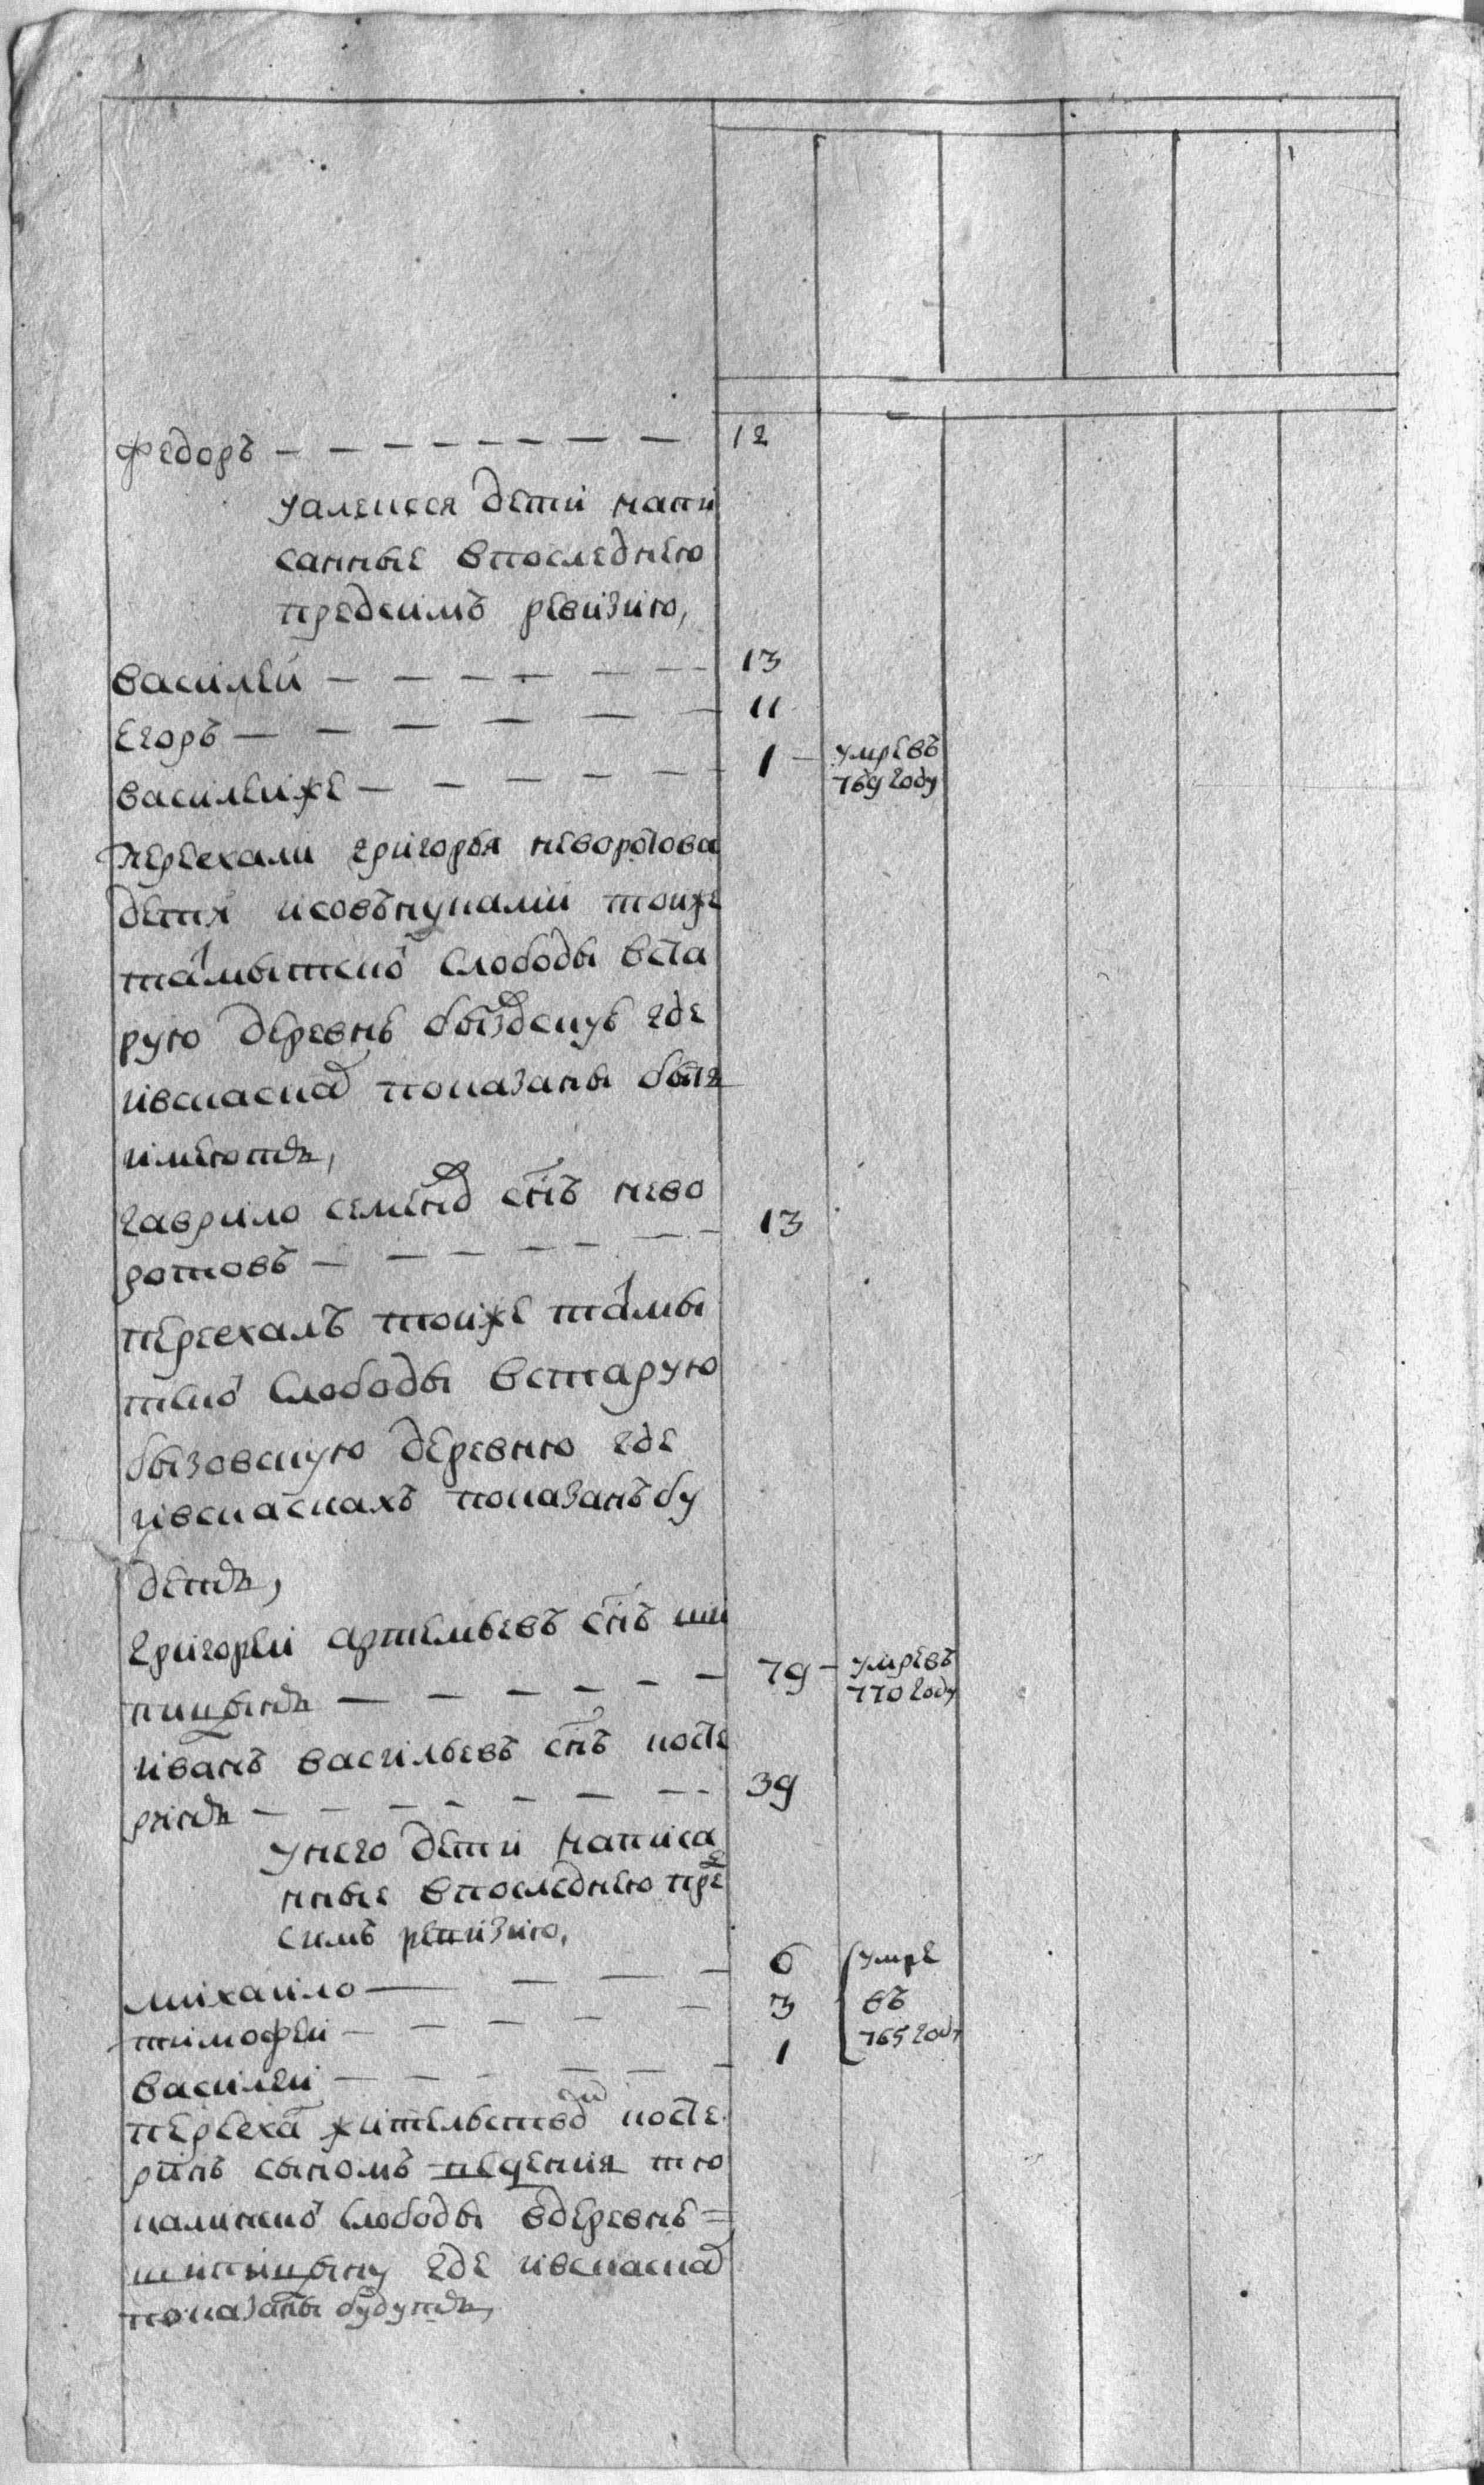 Федоръ — — — — — — — — 12
уалексея дети напи
санные впоследнею
предсимъ ревизию,
василей — — — — — — 13
Егоръ — — — — — — 11
василеиже — — — — — — 1 — умревъ
769 году
переехали григорья неворотова
дети исовънучатми тоиже
слободы вста
рую деревнь где
ивсказкад показаны быть
имеютъ,
гаврило семенод снъ нево
ротовъ — — — — — — — 13
переехалъ тоиже
слободы встарую
бызовскую деревню где
ивсказкахъ показанъ бу
детъ,
григореи артемьевъ снъ ши
пицынъ — — — — — — 79 — умревъ
770 году
иванъ васильевъ снъ косте
ринъ — — — — — — — 39
унего дети написа
нные впоследнею пред
симъ ревизию,
михаило — — — — 6 умре
тимофеи — — — — — 3 въ
василеи — — — — — 1 765 году
переха жительствод косте
ринъ сыномъ тю
слободы вдеревнь =
шипицыну где ивсказкад
показаны будутъ,